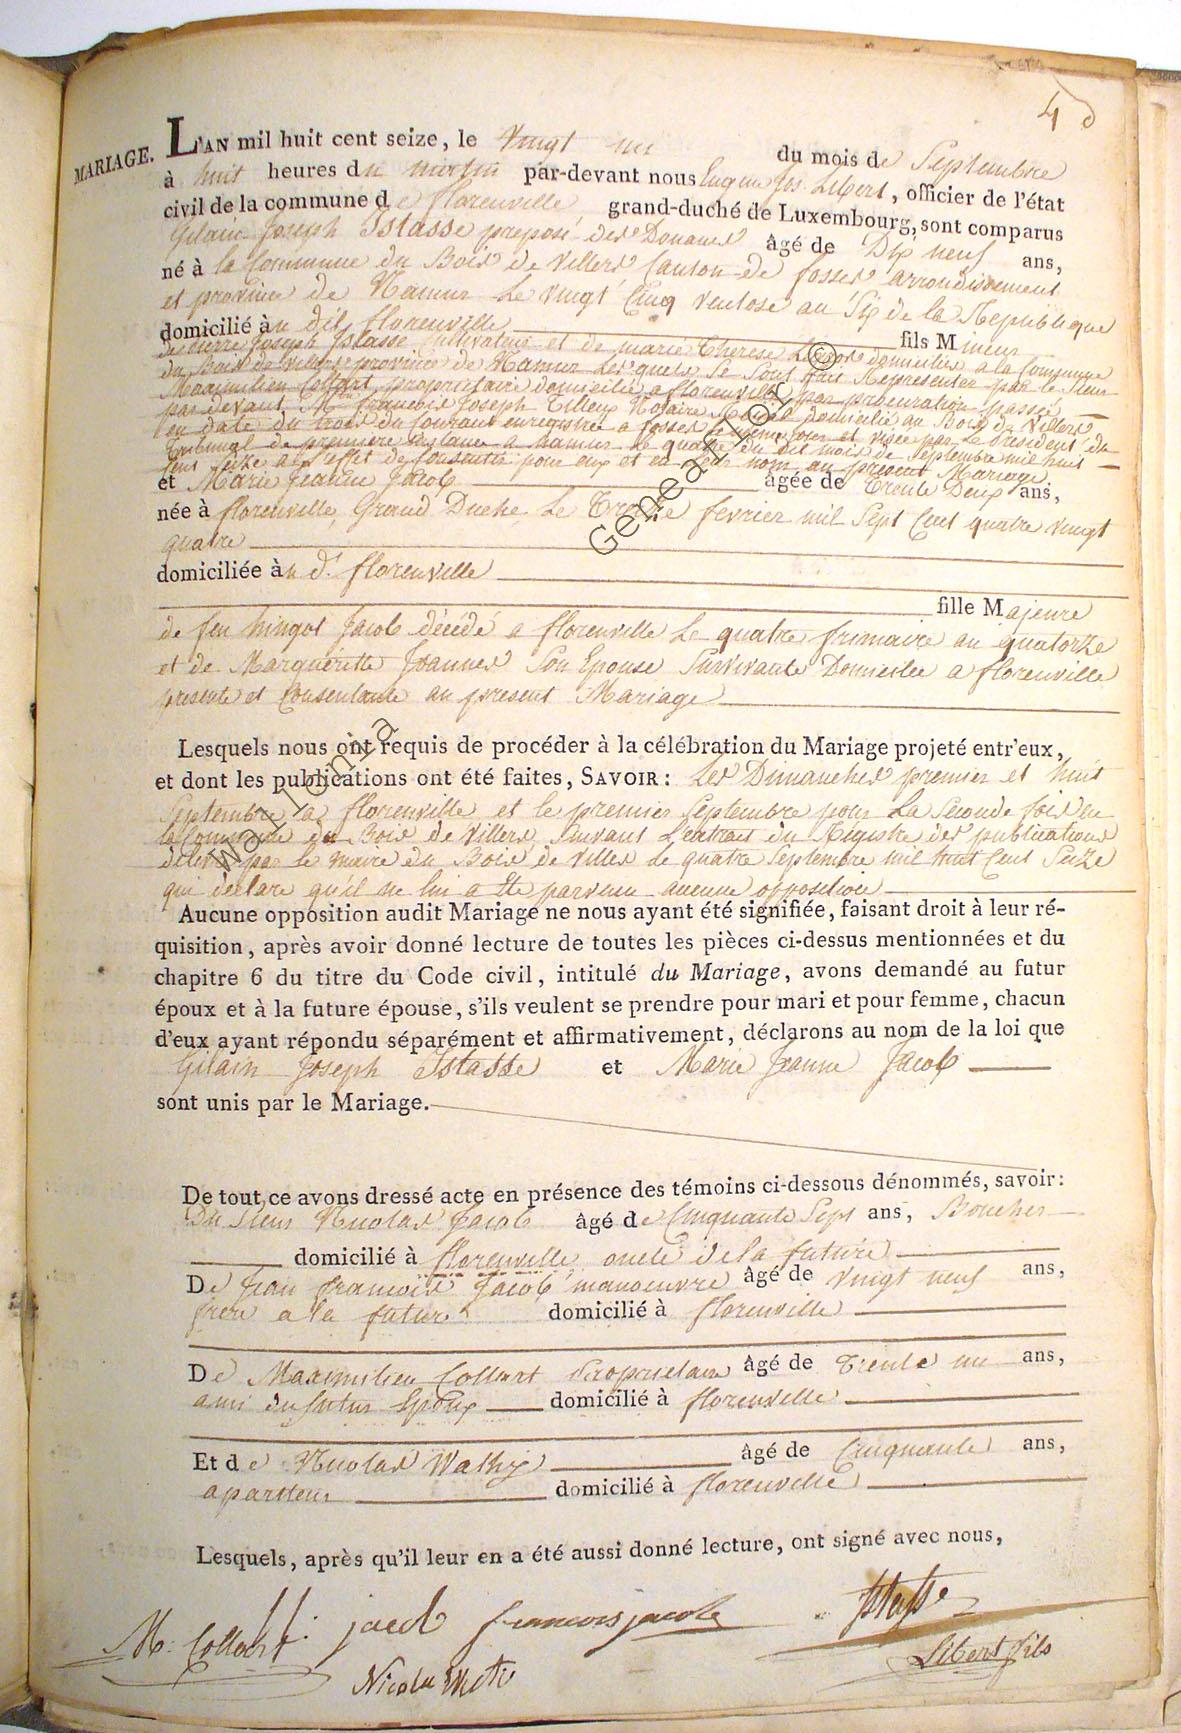 4
MARIAGE.
L'AN mil huit cent seize, le Vingt un du mois de Septembre
à huit heures du matin par-devant nous Eugene Jos. Libert, officier de l'état
civil de la commune de florenville grand-duché de Luxembourg, sont comparus
Gilain Joseph Istasse preposé des Douanes âgé de Dix neuf ans,
né à la Commune du Bois de Villers Canton de fosses arrondissement
et province de Namur Le vingt Cinq ventose an Six de la Republique
domicilié au dit florenville fils Mineur
de pierre Joseph Istasse Cultivateur et de marie Therese domiciliés a la Commune
du Bois de Villers province de Namur Les quels Se Sont fait Representer par le Sieur
Maximilien Collart, proprietaire domicilié a florenville, par procuration passée
par devant Mtre francois Joseph Tilleux Notaire domicilié au Bois de Villers
en date du trois du Courant enregistrée a fosses le meme jour et visée par Le President du
Tribunal de premiere instance a Namur le quatre du dit mois de Septembre mil huit
Cent Seize a l'effet de Consentir pour eux et en leur nom au present Mariage
et Marie Jeanne Jacob âgée de Trente Deux ans,
née à florenville, Grand Duché Le Treize fevrier mil Sept Cent quatre vingt
quatre
domiciliée au d. florenville
fille Majeure
de feu hingot Jacob décédé a florenville Le quatre frimaire an quatorze
et de Marguéritte Joannes Son Epouse Survivante Domiciliée a florenville
presente et Consentante au present Mariage
Lesquels nous ont requis de procéder à la célébration du Mariage projeté entr'eux,
et dont les publications ont été faites, SAVOIR: Les Dimanches premier et huit
Septembre a florenville et le premier Septembre pour La Seconde fois en
la Commune du Bois de Villers, Suivant L'extrait du Registre des publications
délivré par le maire du Bois de Villers le quatre Septembre mil huit Cent Seize
qui declare qu'il ne lui a Eté parvenu aucune opposition
Aucune opposition audit Mariage ne nous ayant été signifiée, faisant droit à leur ré-
quisition, après avoir donné lecture de toutes les pièces ci-dessus mentionnées et du
chapitre 6 du titre du Code civil, intitulé du Mariage, avons demandé au futur
époux et à la future épouse, s'ils veulent se prendre pour mari et pour femme, chacun
d'eux ayant répondu séparément et affirmativement, déclarons au nom de la loi que
Gilain Joseph Istasse et Marie Jeanne Jacob
sont unis par le Mariage.
De tout ce avons dressé acte en présence des témoins ci-dessous dénommés, savoir:
Du Sieur Nicolas Jacob âgé de Cinquante Sept ans, Boucher
domicilié à florenville oncle de la future
De Jean francois Jacob manoeuvre âgé de vingt neuf ans,
frere a la future domicilié à florenville
De Maximilien Collart Proprietaire âgé de Trente un ans,
ami du futur Epoux domicilié à florenville
Et de Nicolas Wathy âgé de Cinquante ans,
apariteur domicilié à florenville
Lesquels, après qu'il leur en a été aussi donné lecture, ont signé avec nous,
M. Collart. jacob francois jacob Istasse
Nicolas Libert fils
GeneaFlor ©